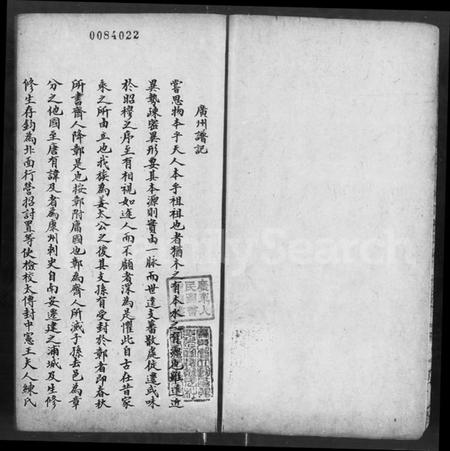 0084022
廣州譜記
嘗思物本乎天人本乎祖祖也者猶木之有本水之有源也雖遠近
異勢疎密異形要其本源則實由一脉而世遠支蕃散處從遷或昧
於昭穆之序至有相視如途人而不顧者深為是懼此自古在昔家
乘之所由立也我族為姜太公之後其支孫有受封於鄣者即春秋
所書齊人降鄣是也按鄣附庸國也鄣為齊人所滅子孫去邑為章
分之他國至唐有諱及者為康州刺史自南安遷建之浦城及生修
修生存鈞為北面行營招討置等使檢校太傅封中憲王夫人練氏
廣東人民圖書
FamilySearch